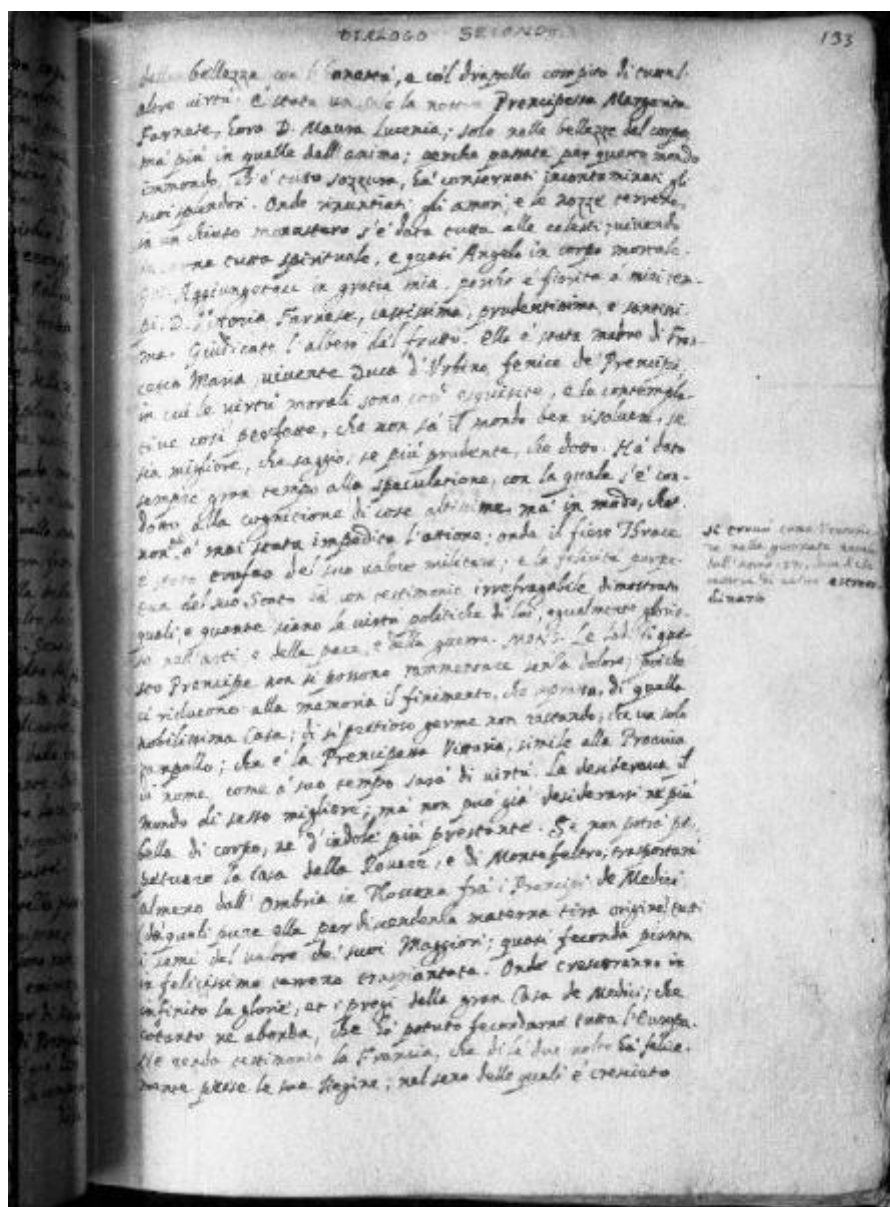 DIALOGO SECONDO
133
della bellezza con l'honestà, e col drappello compito di tutte l'
altre virtù. È stata la nostra Prencipessa Margarita
Farnese, hora D. Maura Lucenia; solo nelle bellezze del corpo,
mà più in quelle dell'animo; perche passata per questo mondo
immondo, ch'è tutto sozzura, hà conservati incontaminati gli
suoi splendori. Onde rinuntiati gli amori, e le nozze terrene,
in un chiuso monastero s'è data tutta alle celesti; vivendo
in carne tutta spirituale, e quasi Angelo in corpo mortale.
Aggiungetece in gratia mia, perche è fiorita à miei tem-
pi, D. Vittoria Farnese, castissima, prudentissima, e santissi-
ma. Giudicate l'albero dal frutto. Ella è stata madre di Fran-
cesco Maria, vivente Duca d'Urbino, fenice de' Prencipi,
in cui le virtù morali sono così esquisite, e le contempla-
tive così perfette, che non sà il mondo ben risolvere, se
sia migliore, che saggio; se più prudente, che dotto. Hà dato
sempre gran tempo alla speculatione, con la quale s'è con-
dotto alla cognitione di cose altissime, mà in modo, che
non è mai stata impedita l'attione; onde il fiero Thrace
è stato trofeo del suo valore militare; e la felicità perpe-
tua del suo Stato hà con testimonio irrefragabile dimostrato
quali, e quante siano le virtù politiche di lui, egualmente glorio-
so nell'arti, e della pace, e della guerra. Le lodi di que-
sto Prencipe non si possono rammentare senza dolore; poiche
ci riducono alla memoria il finimento, che sovrasta, di quella
nobilissima Casa; di sì pretioso germe non restando, che un solo
rampollo; che è la Prencipessa Vittoria, simile alla Proavia
di nome, come à suo tempo sarà di virtù. La desiderava il
mondo di sesso migliore; mà non può già desiderarsi nè più
bella di corpo, nè d'indole più prestante. Se non potrà per-
petuare la Casa della Rovere, e di Montefeltro, trasporterà
almeno dall'Ombria in Toscana frà i Prencipi de Medici
(da' quali pure ella per discendenza materna tira origine) tutti
i semi del valore de' suoi Maggiori; quasi feconda pianta
in felicissimo terreno traspiantata. Onde cresceranno in
infinito le glorie, et i pregi della gran Casa de Medici; che
cotanto ne abonda, che hà potuto fecondarne tutta l'Europa.
Ne renda testimonio la Francia, che di là due volte hà felice-
mente prese le sue Regine; nel seno delle quali è cresciuto
si trovò come
re nella giornata navale
dell'anno
di valore estraor-
dinario